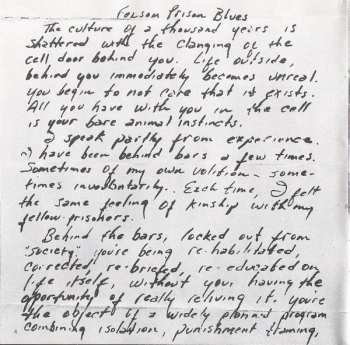 Folsom Prison Blues
The culture of a thousand years is
shattered with the clanging of the
cell door behind you. Life outside,
behind you immediately becomes unreal.
You begin to not care that it exists.
All you have with you in the cell
is your bare animal instincts.
I speak partly from experience.
I have been behind bars a few times.
Sometimes of my own volition - some-
times involuntarily. Each time, I felt
the same feeling of kinship with my
fellow prisoners.
Behind the bars, locked out from
"society," you're being re-habilitated,
corrected, re-briefed, re-educated on
life itself, without your having the
opportunity of really reliving it. You're
the object of a widely planned program
combining isolation, punishment training,